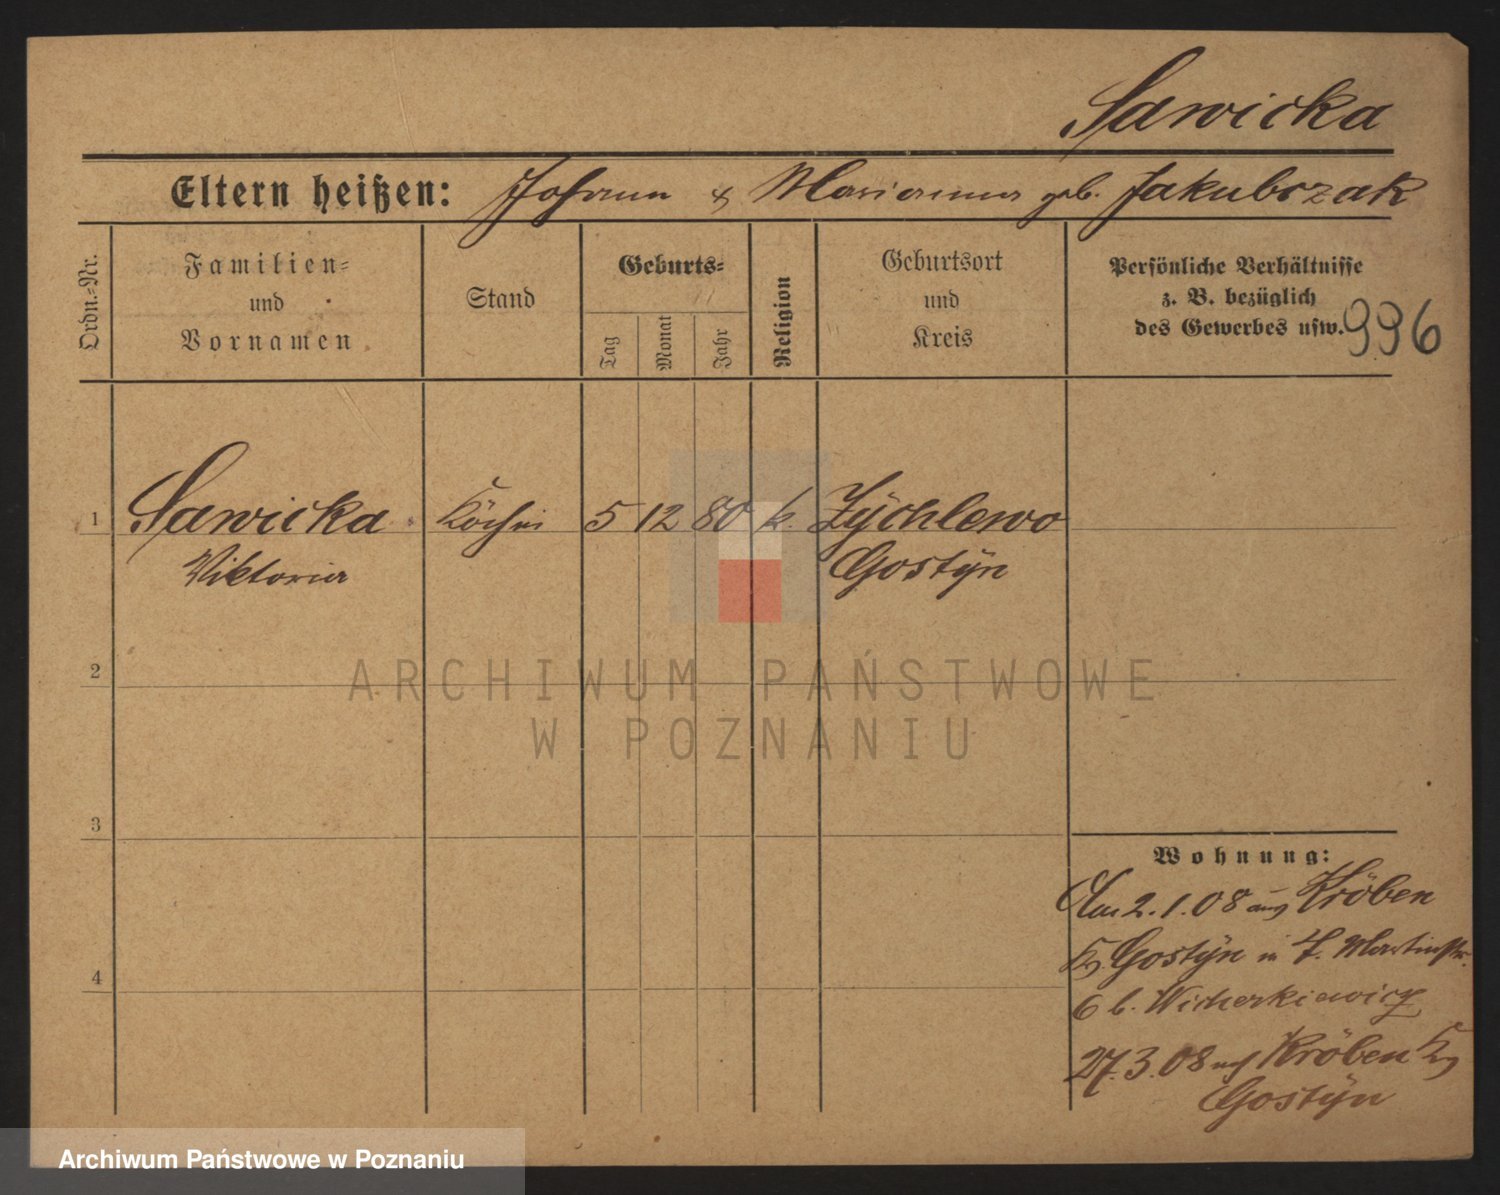 Sawicka
Eltern heißen: Johann & Marianna geb. Jakubczak
Ordn.-Nr.
Familien-
und
Vornamen
Stand
Geburts-
Tag
Monat
Jahr
Religion
Geburtsort
und
Kreis
Persönliche Verhältnisse
z. B. bezüglich
des Gewerbes usw.
996
1 Sawicka Köchin 5 12 80 k. Zÿchlewo
Viktoria Gostÿn
2
ARCHIWUM PAŃSTWOWE
W POZNANIU
3
Wohnung:
Am 2.1.08 aus Kröben
Kr. Gostÿn in St. Martinstr.
6 b. Wicherkiewicz
27.3.08 nach Kröben Kr.
Gostÿn
4
Archiwum Państwowe w Poznaniu